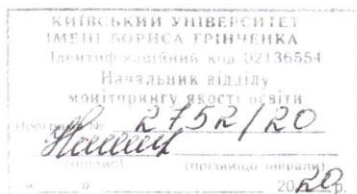 КИЇВСЬКИЙ УНІВЕРСИТЕТ
ІМЕНІ БОРИСА ГРІНЧЕНКА
Ідентифікаційний код 02136554
Начальник відділу
моніторингу якості освіти
Програма № 2752/20
(підпис) (прізвище, ініціали)
2020 р.